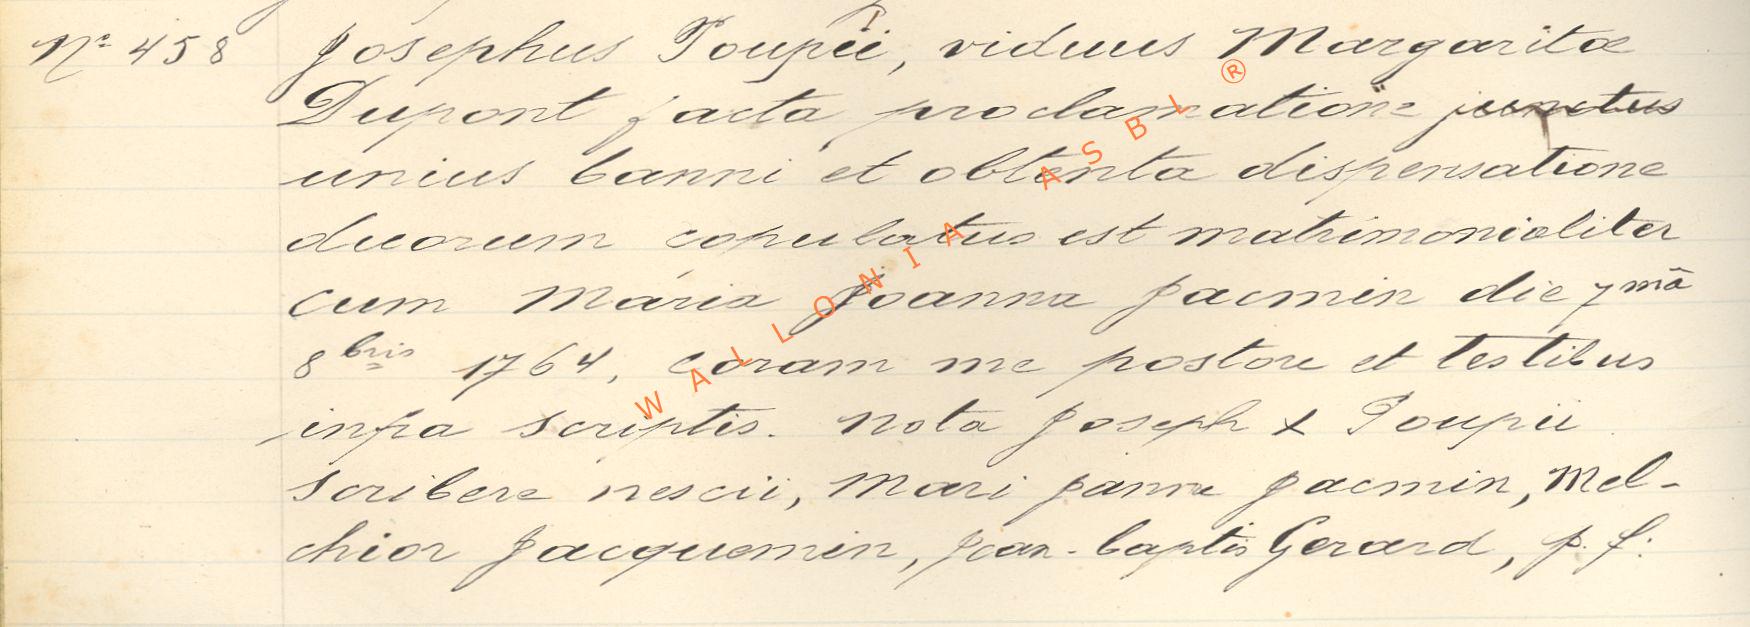 N° 458 Josephus Poupëi, viduus Margaritæ
Dupont facta proclamatione junctus
unius banni et obtenta dispensatione
duorum copulatus est matrimonialiter
cum Maria Joanna Jacmin die 7mâ
8bris 1764, coram me pastore et testibus
infra scriptis. Nota Joseph X Poupii
scribere nescii, Mari janne Jacmin, Mel-
chior Jacquemin, Jean-baptis Gerard, p. f.
WALLONIA ASBL ®